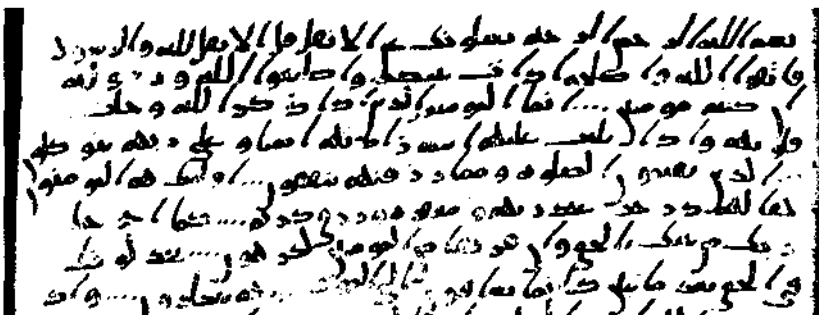 بسم الله الرحمن الرحيم يسلونك عن الانفال قل الانفال لله والرسول
فاتقوا الله واصلحوا ذات بينكم واطيعوا الله ورسوله
ان كنتم مومنين انما المومنون الذين اذا ذكر الله وجلت
قلوبهم واذا تليت عليهم ايته زادتهم ايمنا وعلى ربهم يتوكلون
الذين يقيمون الصلوة ومما رزقنهم ينفقون اولئك هم المومنون
حقا لهم درجت عند ربهم ومغفرة ورزق كريم كما اخرجك
ربك من بيتك بالحق وان فريقا من المومنين لكرهون يجدلونك
في الحق بعد ما تبين كانما يساقون الى الموت وهم ينظرون واذ